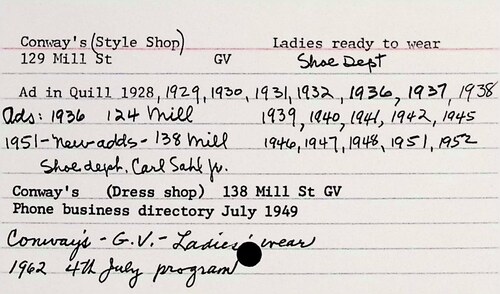 Conway's (Style Shop) Ladies ready to wear
129 Mill St GV Shoe Dept
Ad in Quill 1928, 1929, 1930, 1931, 1932, 1936, 1937, 1938
Ads: 1936 124 Mill 1939, 1940, 1941, 1942, 1945
1951 - New adds - 138 Mill 1946, 1947, 1948, 1951, 1952
Shoe deph. Carl Sahl Jr.
Conway's (Dress shop) 138 Mill St GV
Phone business directory July 1949
Conway's - G.V. - Ladies' wear
1962 4th July program